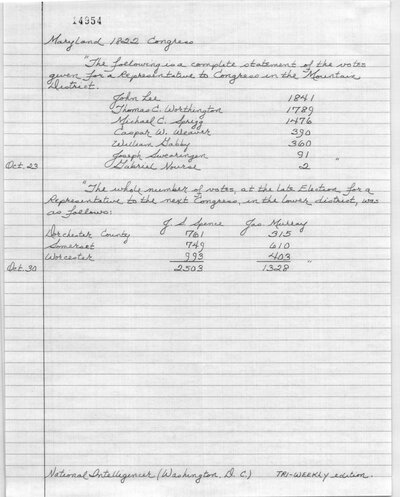 14954
Maryland 1822 Congress
"The following is a complete statement of the votes
given for a Representative to Congress in the Mountain
District.
John Lee 1841
Thomas C. Worthington 1789
Michael C. Sprigg 1476
Caspar W. Weaver 390
William Gabby 360
Joseph Swearingen 91
Oct. 23 Gabriel Nourse 2 "
"The whole number of votes, at the late Election for a
Representative to the next Congress, in the lower district, was
as follows:
J. S. Spence Jas. Murray
Dorchester County 761 315
Somerset 749 610
Worcester 993 403 "
Oct. 30 2503 1328
National Intelligencer (Washington, D. C.) TRI-WEEKLY edition.